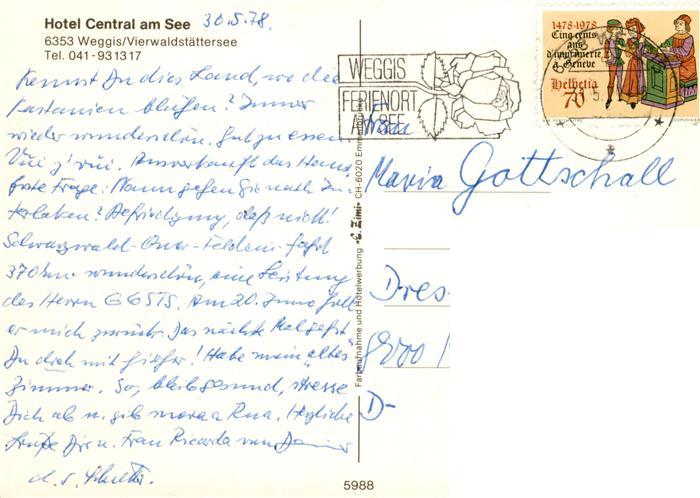 Hotel Central am See
30.5.78.
6353 Weggis/Vierwaldstättersee
Tel. 041-931317
Kennst Du dies Land, wo die
Kastanien blühen? Immer
wieder wunderschön. Gut zu essen.
Vis à vis. Ausverkauft das Haus,
erste Frage: Wann gehen Sie nach In-
terlaken? Befriedigung, daß nicht!
Schwarzwald- fahrt
370 km wunderschön, eine Leistung
des Herrn GGSTS. Am 20. Juno holt
er mich zurück. Das nächste Mal gehst
Du doch mit hieher! Habe mein "altes"
Zimmer. So, bleib gesund, stresse
Dich ab u. gib Rua. Herzliche
Grüße Dir u. Frau Ricarda von Deiner
d. s.
WEGGIS
FERIENORT
AM SEE
1478-1978
Cinq cents
ans
d'imprimerie
à Genève
Helvetia
70
Frau
Maria Gottschall
Dres
8000
D-
Farbaufnahme und Hotelwerbung «E. Zimi» CH-6020 Emmen
5988